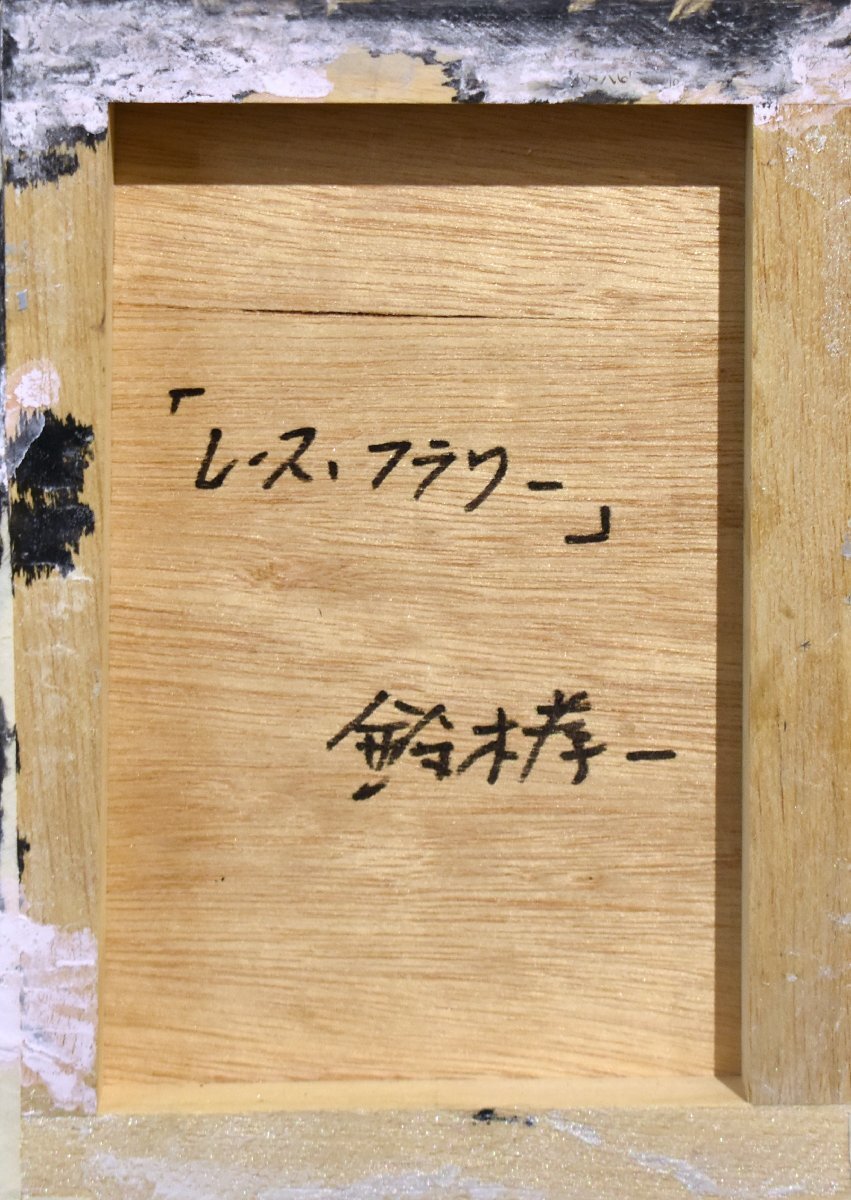 「レース、フラワー」
鈴木孝一